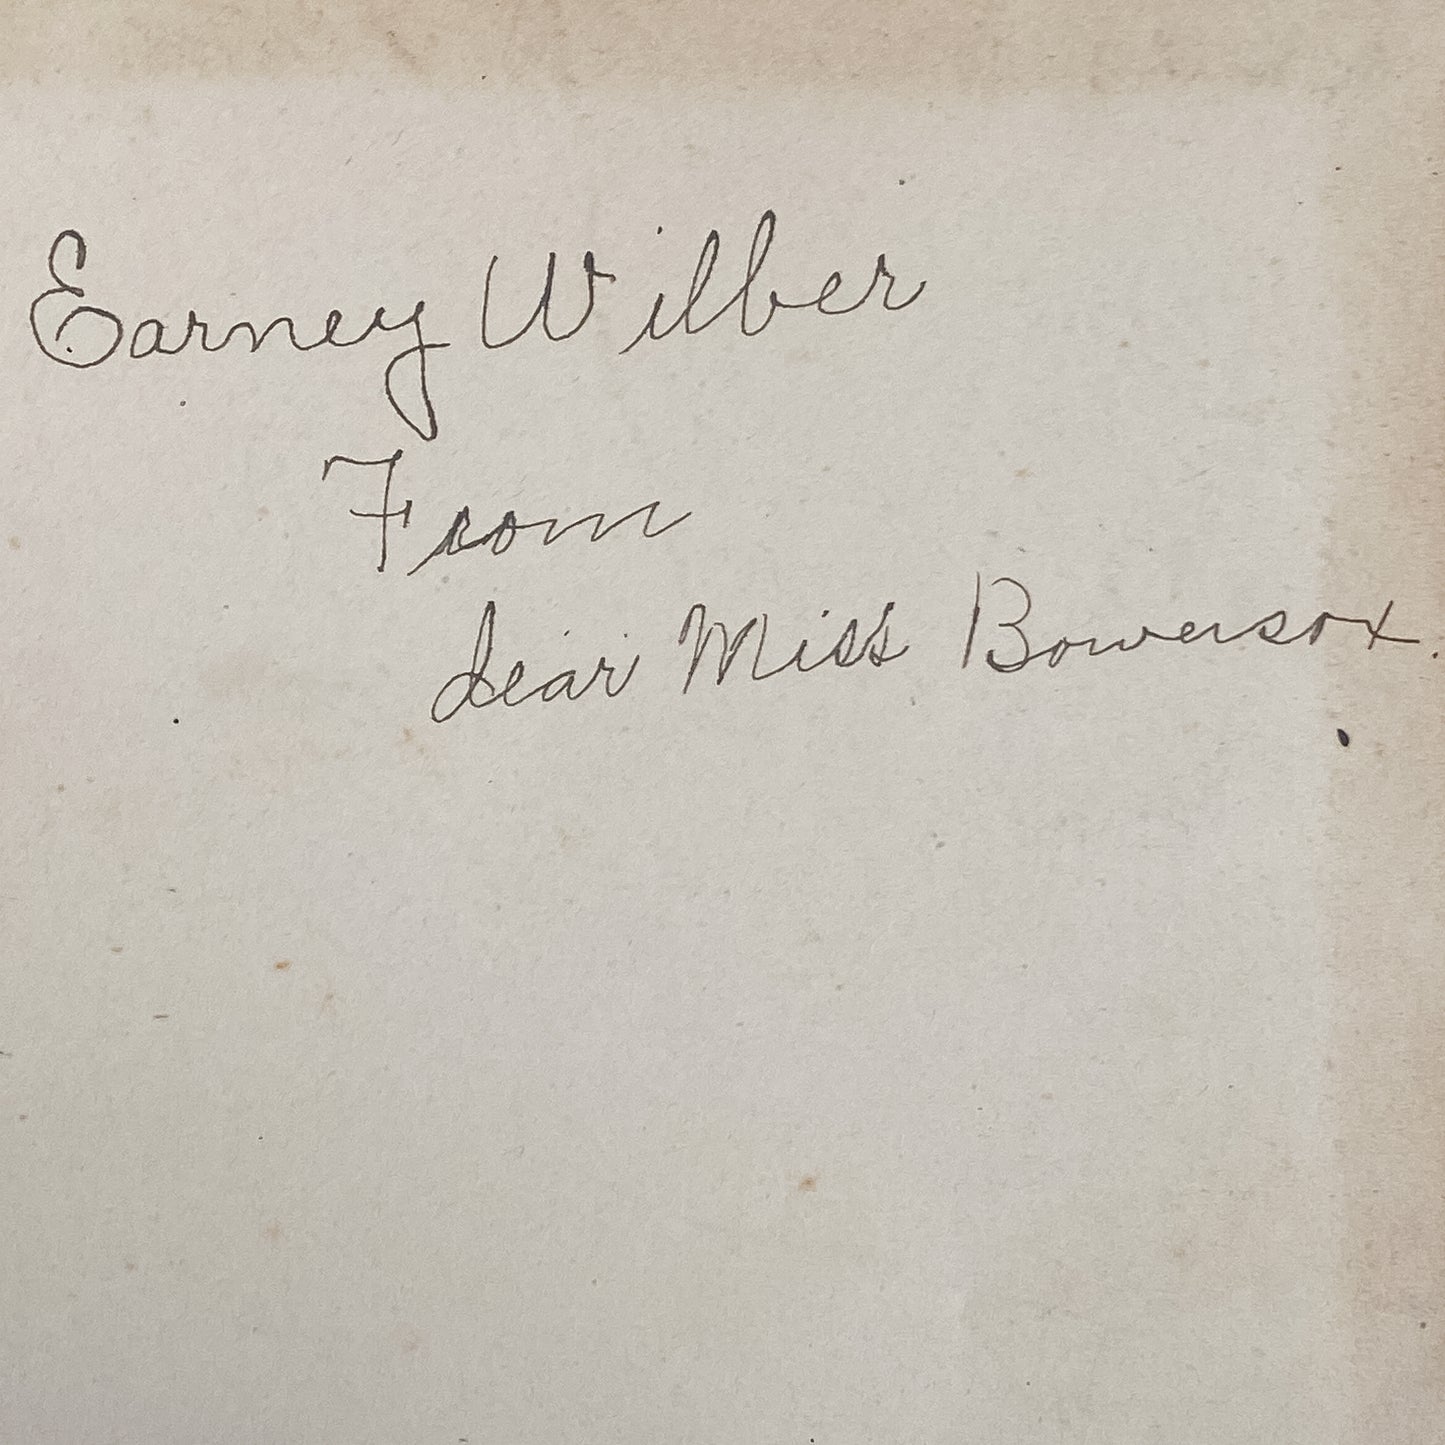 Earney Wilber
From
dear Miss Bowersox.